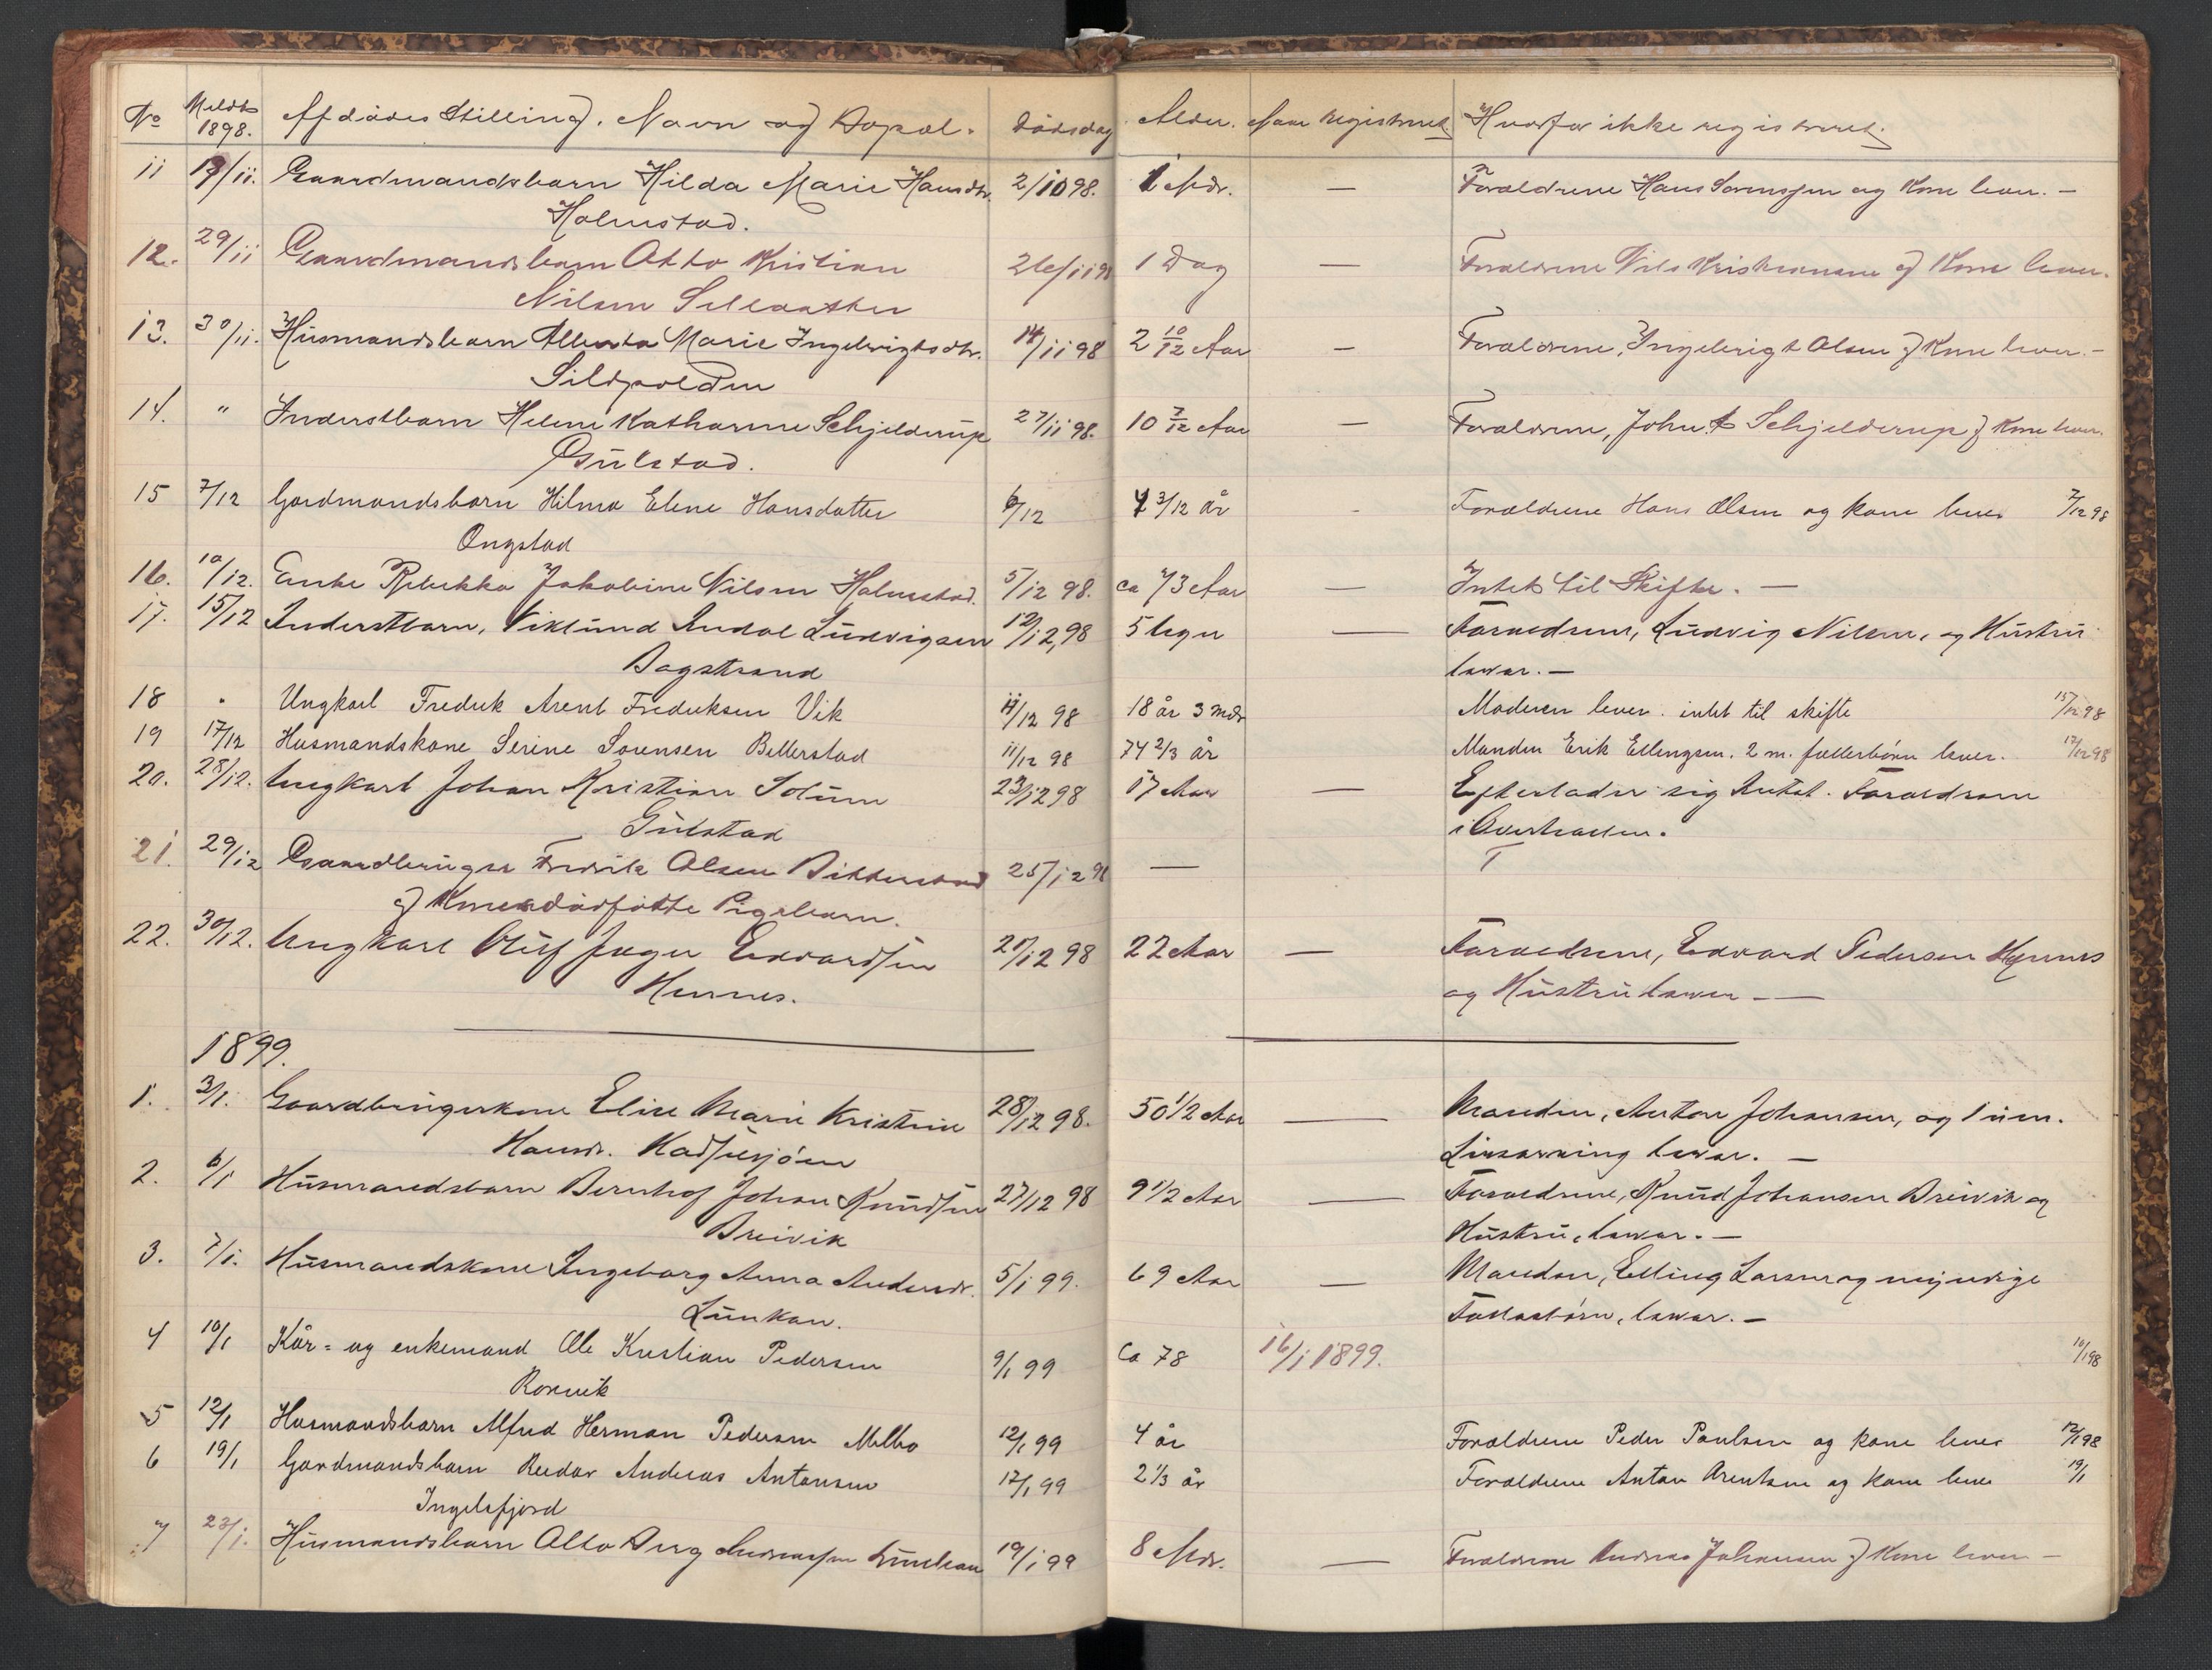 No Meldt 1898. Afdødes Stilling, Navn og Bopæl. Dödsdag Alder. Naar registreret Hvorfor ikke registreret.
11 19/11. Gaardmandsbarn Hilda Marie Hansdtr. 2/10 98. 1 Mdr. — Forældrene Hans Sørenssen og Kone lever. —
Holmstad.
12. 29/11 Gaardmandsbarn Otto Kristian 26/11 98 1 Dag — Forældrene Nils Kristiansen og Kone lever.
Nilsen
13. 30/11. Husmandsbarn Alberta Marie Ingebrigtsdtr. 14/11 98 2 10/12 Aar — Forældrene, Ingebrigt Olsen og Kone lever. —
Sildpolden
14. " Inderstbarn Helene Katharine Schjelderup 27/11 98. 10 7/12 Aar — Forældrene, John A Schjelderup og Kone lever.
Gulstad.
15 7/12 Gardmandsbarn Hilma Elene Hansdatter 6/12 4 3/12 år - Forældrene Hans Olsen og kone lever 7/12 98
Ongstad
16. 10/12. Enke Rebekka Jakobine Nilsen Holmstad. 5/12 98. ca 73 Aar — Intet til Skifte. —
17. 15/12 Inderstbarn, Viklund Andal Ludvigsen 12/12, 98 5 Uger — Foraeldrene, Ludvig Nilsen, og Hustru
Dagstrand lever. —
18 " Ungkarl Fredrik Arent Fredriksen Vik 14/12 98 18 år 3 mdr Moderen lever. intet til skifte 15/12 98
19 17/12 Husmandskone Serine Sørensen Bitterstad 11/12 98 74 2/3 år Manden Erik Ellingsen. 2 m. fællesbørn lever. 17/12 98
20. 28/12. Ungkarl Johan Kristian Solum 23/12 98 17 Aar — Efterlader sig Intet. Foraeldrene
Gulstad i Overhalden.
21. 29/12 Gaardbruger Fredrik Olsen Bitterstad 25/12 98 —
og Kones dödfödte Pigebarn.
22. 30/12. Ungkarl Oluf Jager Edvardsen 20/12 98 22 Aar — Foraeldrene, Edvard Pedersen Hennes
Hennes. og Hustru lever. —
1899.
1. 3/1. Gaardbrugerkone Elise Marie Kristine 28/12 98. 50 1/2 Aar — Manden, Anton Johansen, og 1 um.
Hansdr. Hadselsjöen Livsarving lever. —
2. 6/1 Husmandsbarn Bernhof Johan Knudsen 27/12 98 9 1/2 Aar — Foraeldrene, Knud Johansen Breivik og
Breivik Hustru, lever. —
3. 7/1. Husmandskone Ingeborg Anna Andersdr. 5/1 99. 69 Aar — Manden, Elling Larsen og myndige
Lunkan. Fællesbörn, lever. —
4 10/1 Kår- og enkemand Ole Kristian Pedersen 9/1 99 Ca 78 16/1 1899. 10/1 98
Rørvik
5 12/1 Husmandsbarn Alfred Herman Pedersen Melbo 12/1 99 4 år Forældrene Peder Paulsen og kone lever 12/1 98
6 19/1 Gardmandsbarn Reidar Andreas Antonsen 17/1 99 2 1/3 år Forældrene Anton Arentsen og kone lever 19/1
Ingelsfjord
7 23/1. Husmandsbarn Otto Berg Andreassen Lunkan 19/1 99 8 Mdr. — Forældrene Andreas Johansen og Kone lever —